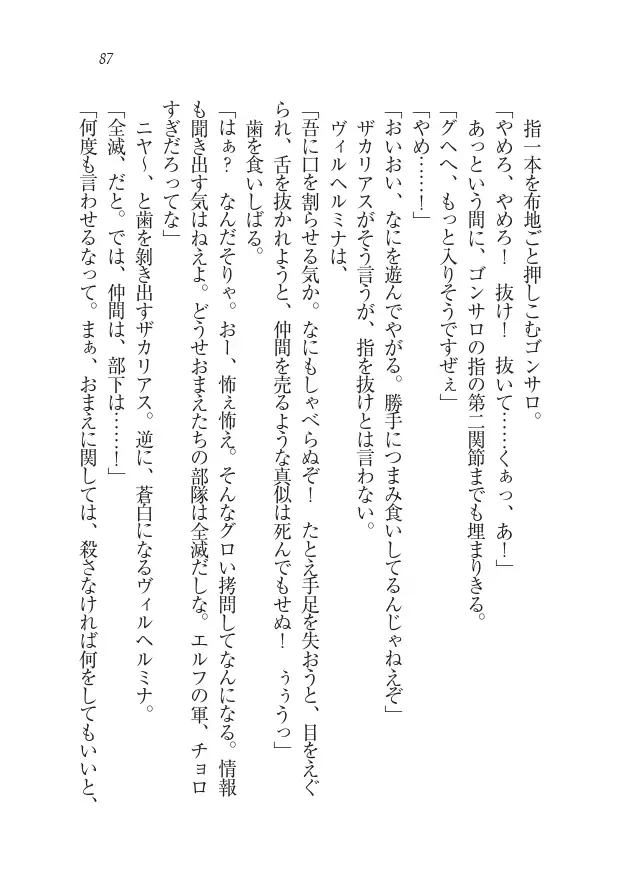 87
指一本を布地ごと押しこむゴンサロ。
「やめろ、やめろ！　抜け！　抜いて……くぁっ、あ！」
あっという間に、ゴンサロの指の第二関節までも埋まりきる。
「グヘヘ、もっと入りそうですぜぇ」
「やめ……！」
「おいおい、なにを遊んでやがる。勝手につまみ食いしてるんじゃねえぞ」
ザカリアスがそう言うが、指を抜けとは言わない。
ヴィルヘルミナは、
「吾に口を割らせる気か。なにもしゃべらぬぞ！　たとえ手足を失おうと、目をえぐ
られ、舌を抜かれようと、仲間を売るような真似は死んでもせぬ！　ぅぅうっ」
歯を食いしばる。
「はぁ？　なんだそりゃ。おー、怖ぇ怖え。そんなグロい拷問してなんになる。情報
も聞き出す気はねえよ。どうせおまえたちの部隊は全滅だしな。エルフの軍、チョロ
すぎだろってな」
ニヤ〜、と歯を剝き出すザカリアス。逆に、蒼白になるヴィルヘルミナ。
「全滅、だと。では、仲間は、部下は……！」
「何度も言わせるなって。まぁ、おまえに関しては、殺さなければ何をしてもいいと、